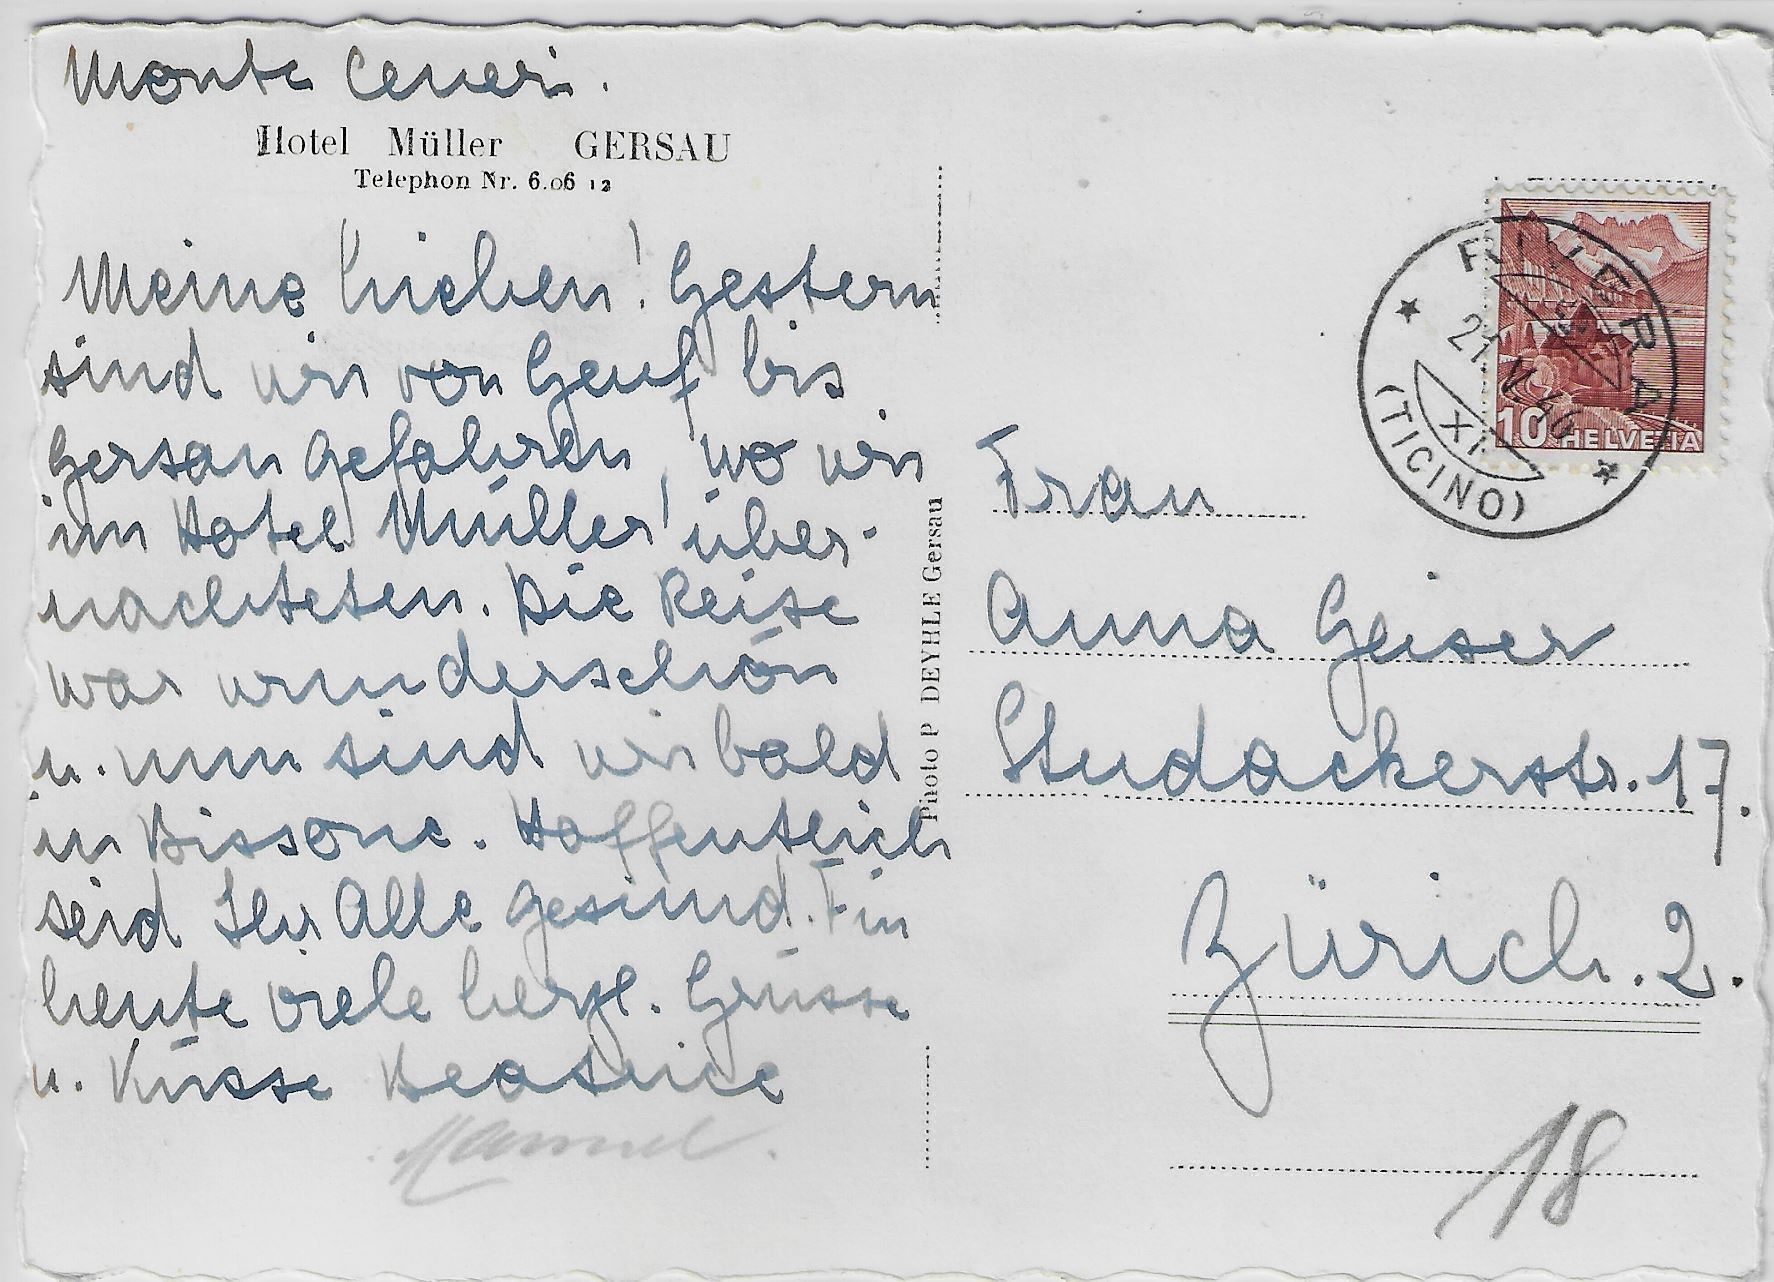 Monte Ceneri.
Hotel Müller GERSAU
Telephon Nr. 6.06 12
Meine Lieben! Gestern
sind wir von Genf bis
Gersau gefahren, wo wir
im Hotel Müller über-
nachteten. Die Reise
war wunderschön
u. nun sind wir bald
in Bissone. Hoffentlich
seid Ihr Alle gesund. Für
heute viele herzl. Grüsse
u. Küsse Beatrice
Photo P DEYHLE Gersau
RIVERA
21. V. 46
XII
(TICINO)
10 HELVETIA
Frau
Anna Geiser
Studackerstr. 17.
Zürich. 2.
18